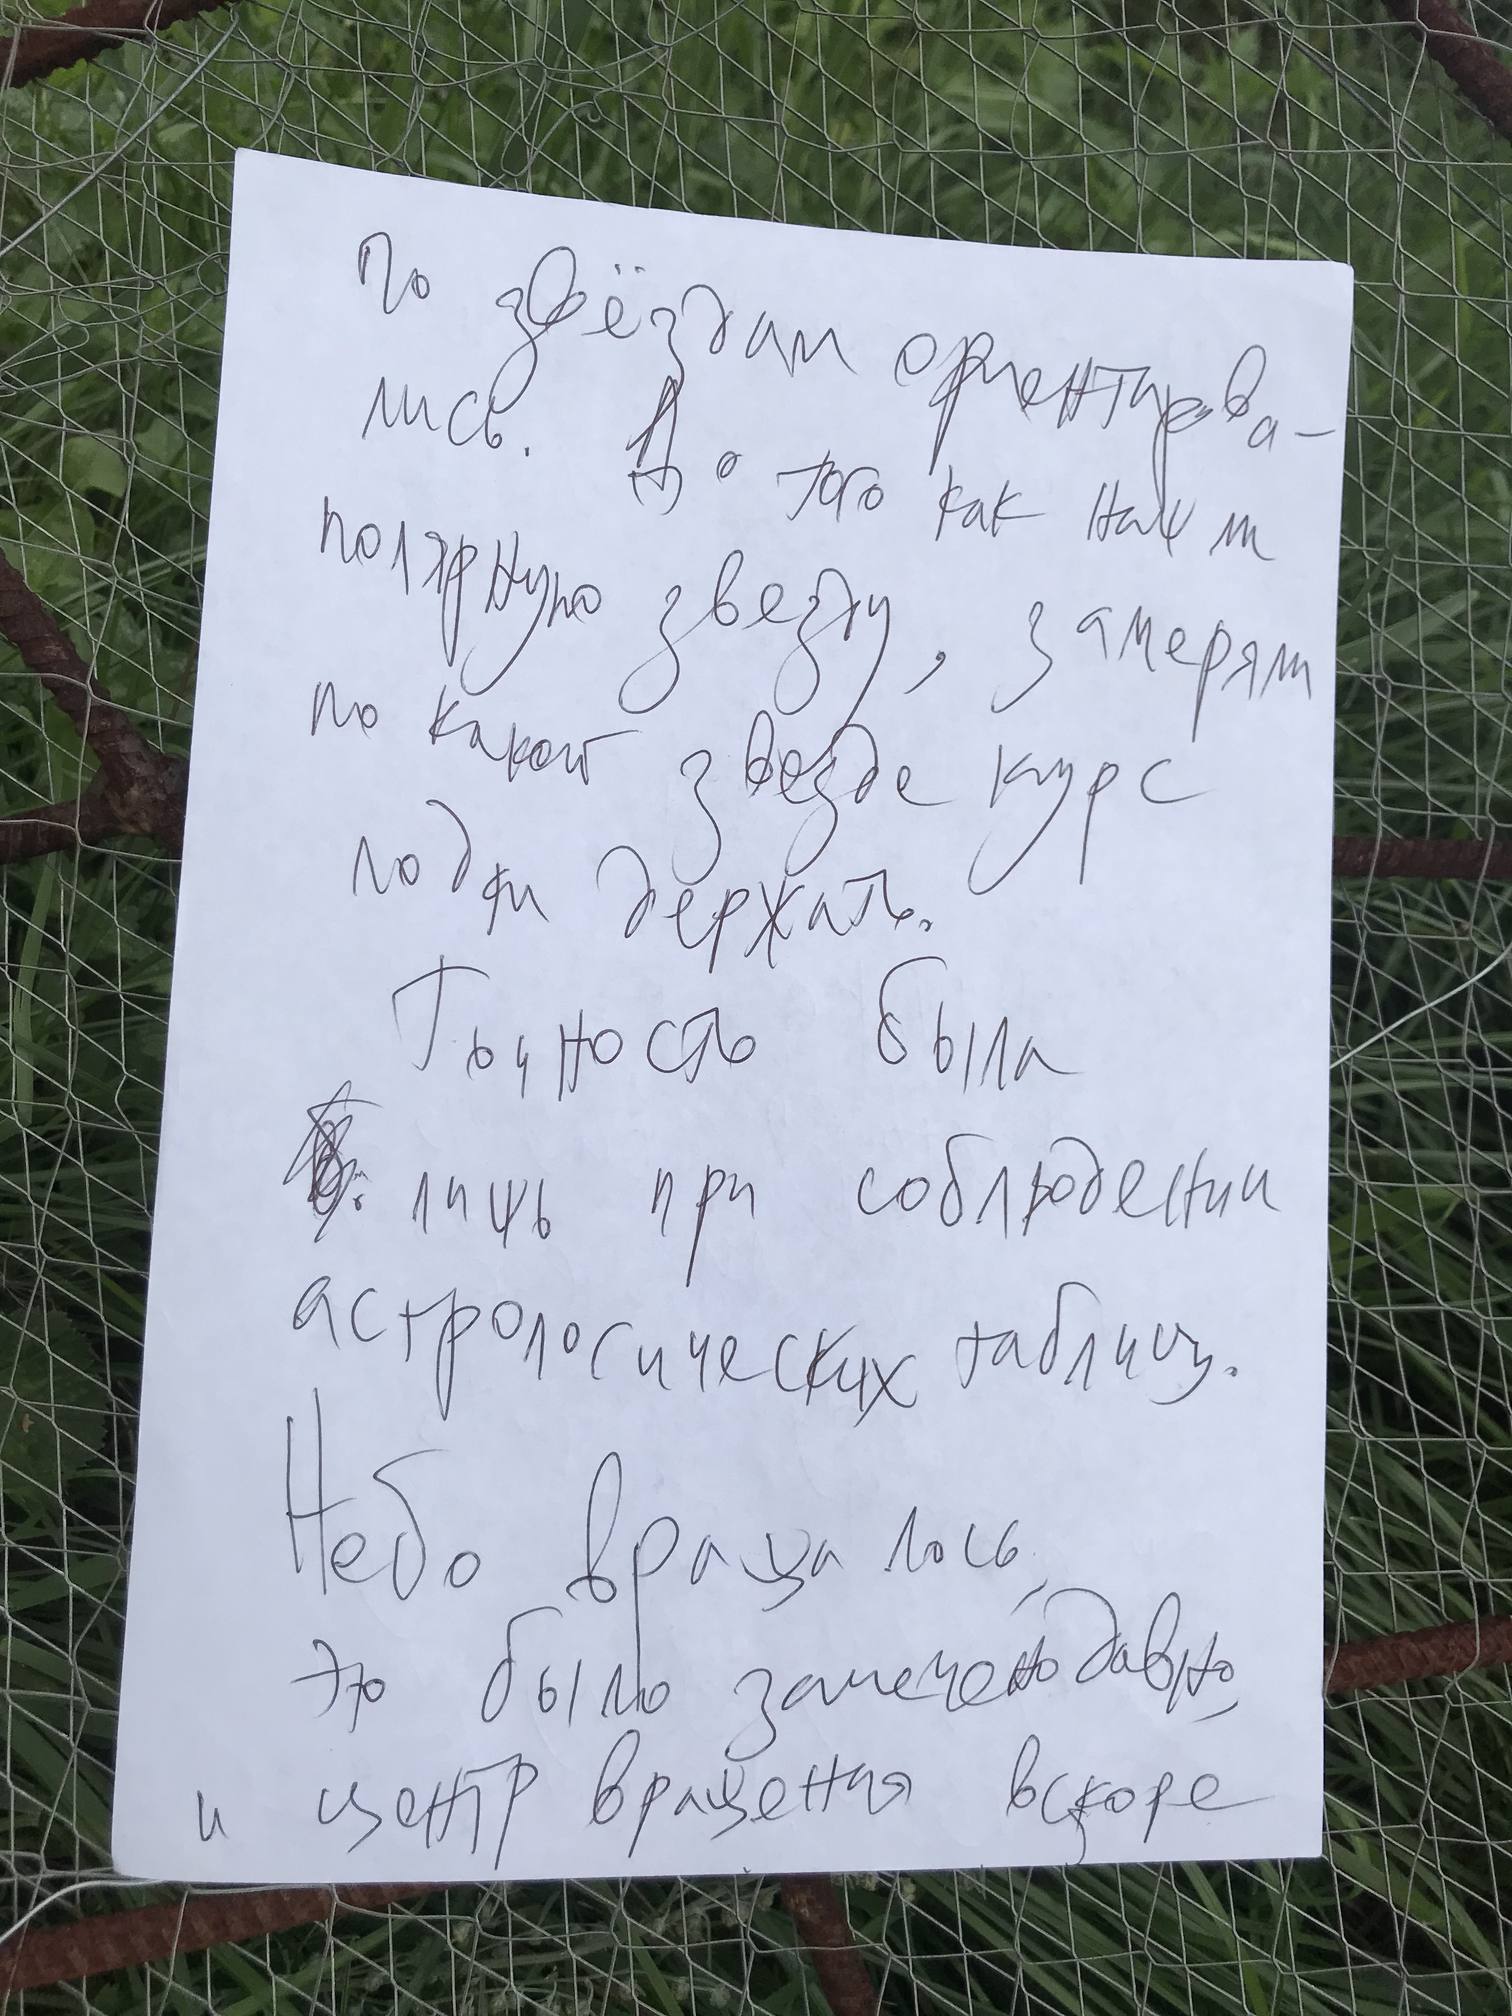 по звёздам ориентирова-
лись. До того как найти
полярную звезду, замеряли
по какой звезде курс
лодки держать.
Точность была
лишь при соблюдении
астрологических таблиц.
Небо вращалось,
это было замечено давно,
и центр вращения вскоре